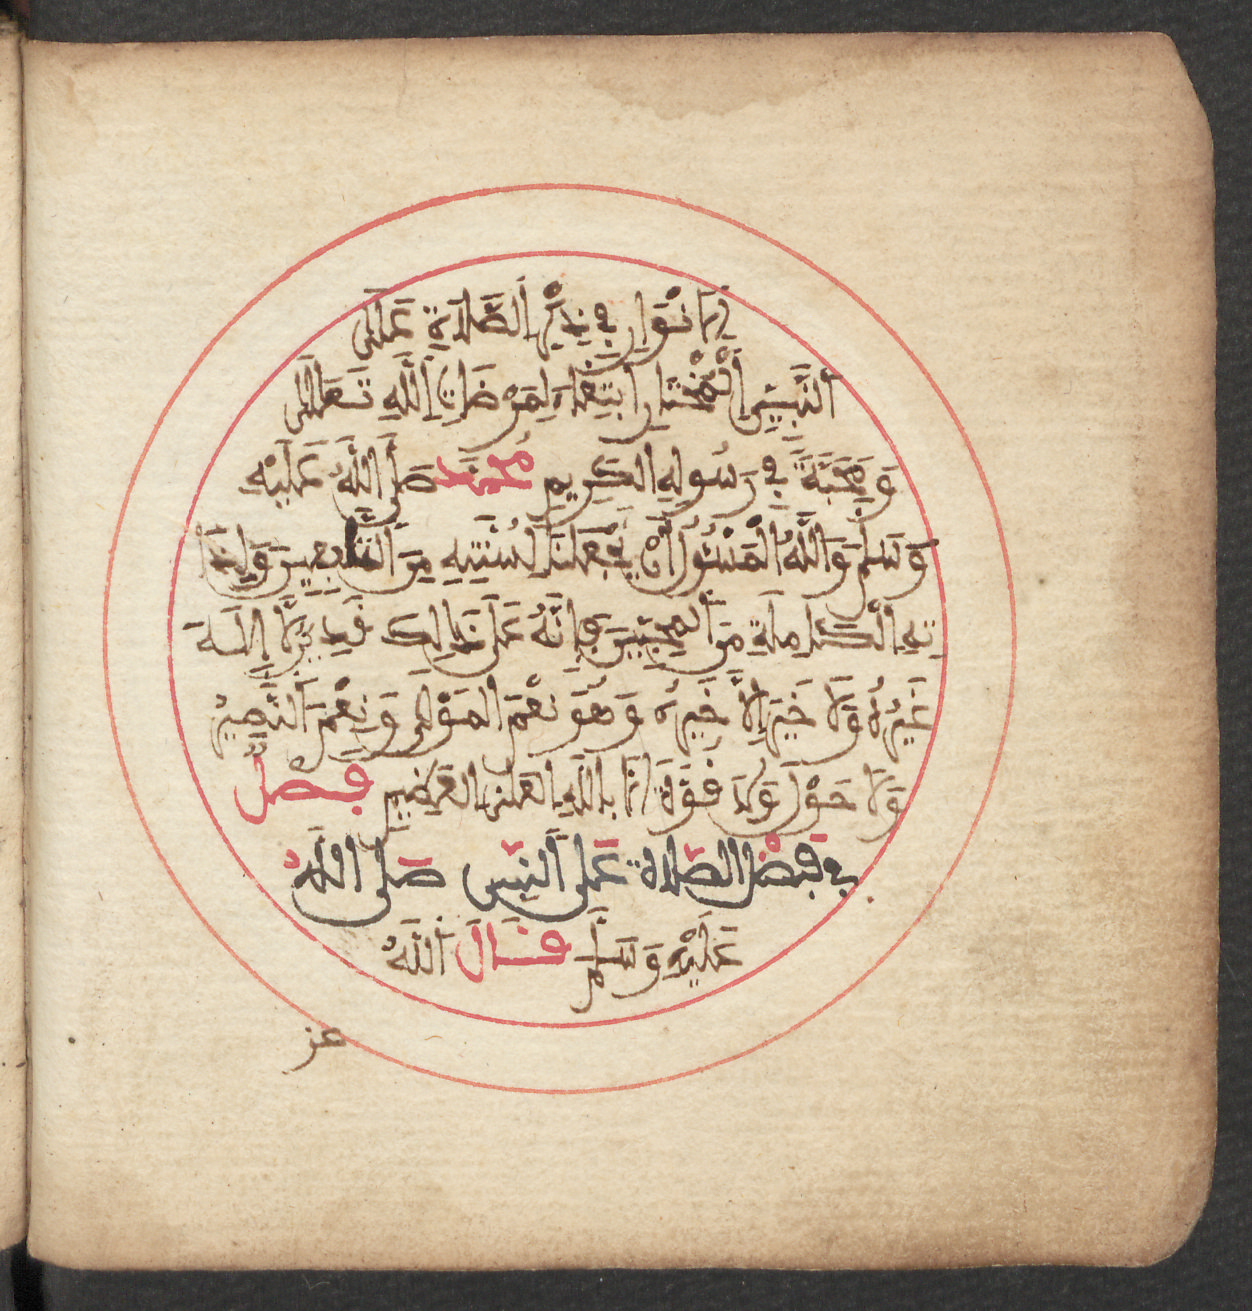 الأَنْوَارِ فِي ذِكْرِ الصَّلَاةِ عَلَى
النَّبِيِّ الْمُخْتَارِ ابْتِغَاءً لِمَرْضَاتِ اللَّهِ تَعَالَى
وَمَحَبَّةً فِي رَسُولِهِ الْكَرِيمِ مُحَمَّد صَلَّى اللَّهُ عَلَيْهِ
وَسَلَّمَ وَاللَّهُ الْمَسْئُولُ أَنْ يَجْعَلَنَا لِسُنَّتِهِ مِنَ التَّابِعِينَ وَلِذَا
تِهِ الْكَامِلَةِ مِنَ الْمُحِبِّينَ فَإِنَّهُ عَلَى ذَالِكَ قَدِيرٌ لَا إِلَهَ
غَيْرُهُ وَلَا خَيْرَ إِلَّا خَيْرُهُ وَهُوَ نِعْمَ الْمَوْلَى وَنِعْمَ النَّصِيرُ
وَلَا حَوْلَ وَلَا قُوَّةَ إِلَّا بِاللَّهِ الْعَلِيِّ الْعَظِيمِ فَصْلٌ
فِي فَضْلِ الصَّلَاةِ عَلَى النَّبِيِّ صَلَّى اللَّهُ
عَلَيْهِ وَسَلَّمَ قَالَ اللَّهُ
عز